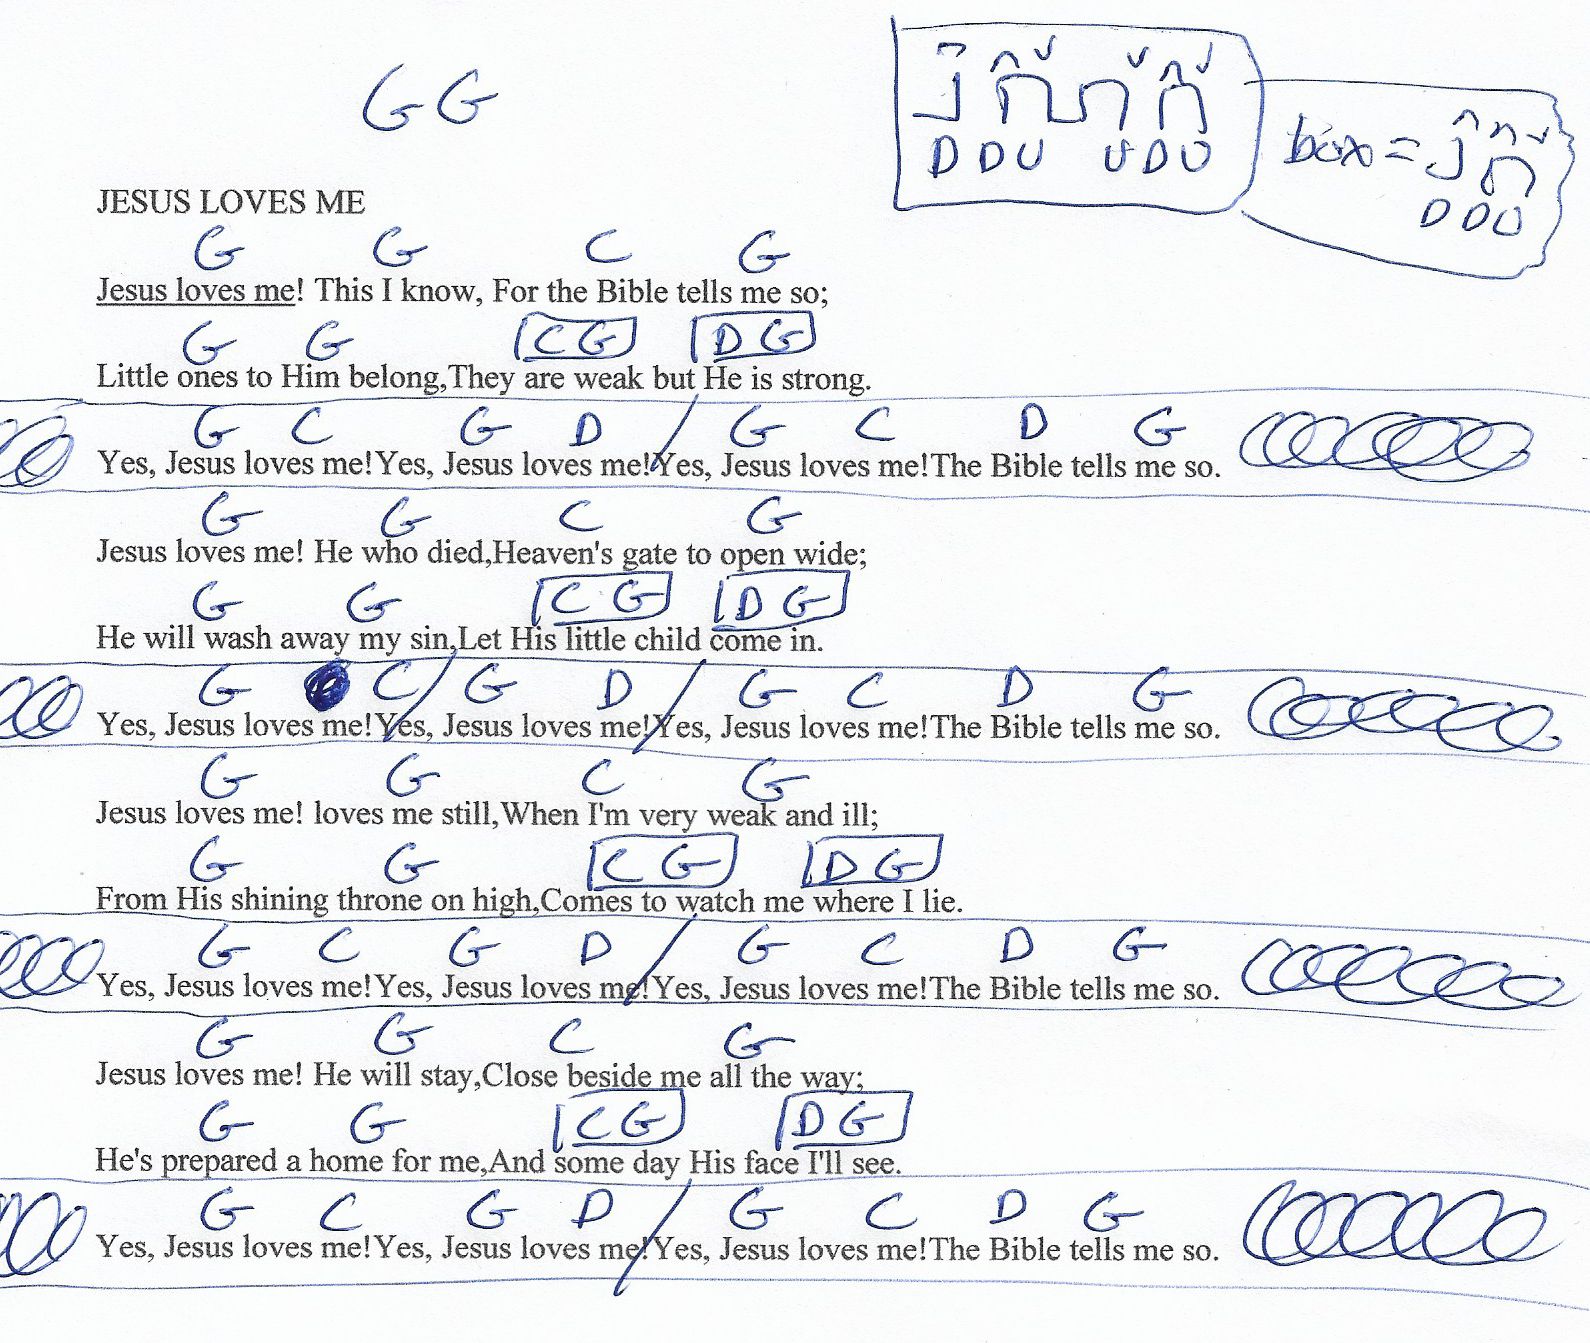 G G
D D U U D U
box =
D D U
JESUS LOVES ME
G G C G
Jesus loves me! This I know, For the Bible tells me so;
G G C G D G
Little ones to Him belong,They are weak but He is strong.
G C G D / G C D G
Yes, Jesus loves me!Yes, Jesus loves me!Yes, Jesus loves me!The Bible tells me so.
G G C G
Jesus loves me! He who died,Heaven's gate to open wide;
G G C G D G
He will wash away my sin,Let His little child come in.
G C / G D / G C D G
Yes, Jesus loves me!Yes, Jesus loves me!Yes, Jesus loves me!The Bible tells me so.
G G C G
Jesus loves me! loves me still,When I'm very weak and ill;
G G C G D G
From His shining throne on high,Comes to watch me where I lie.
G C G D / G C D G
Yes, Jesus loves me!Yes, Jesus loves me!Yes, Jesus loves me!The Bible tells me so.
G G C G
Jesus loves me! He will stay,Close beside me all the way;
G G C G D G
He's prepared a home for me,And some day His face I'll see.
G C G D / G C D G
Yes, Jesus loves me!Yes, Jesus loves me!Yes, Jesus loves me!The Bible tells me so.